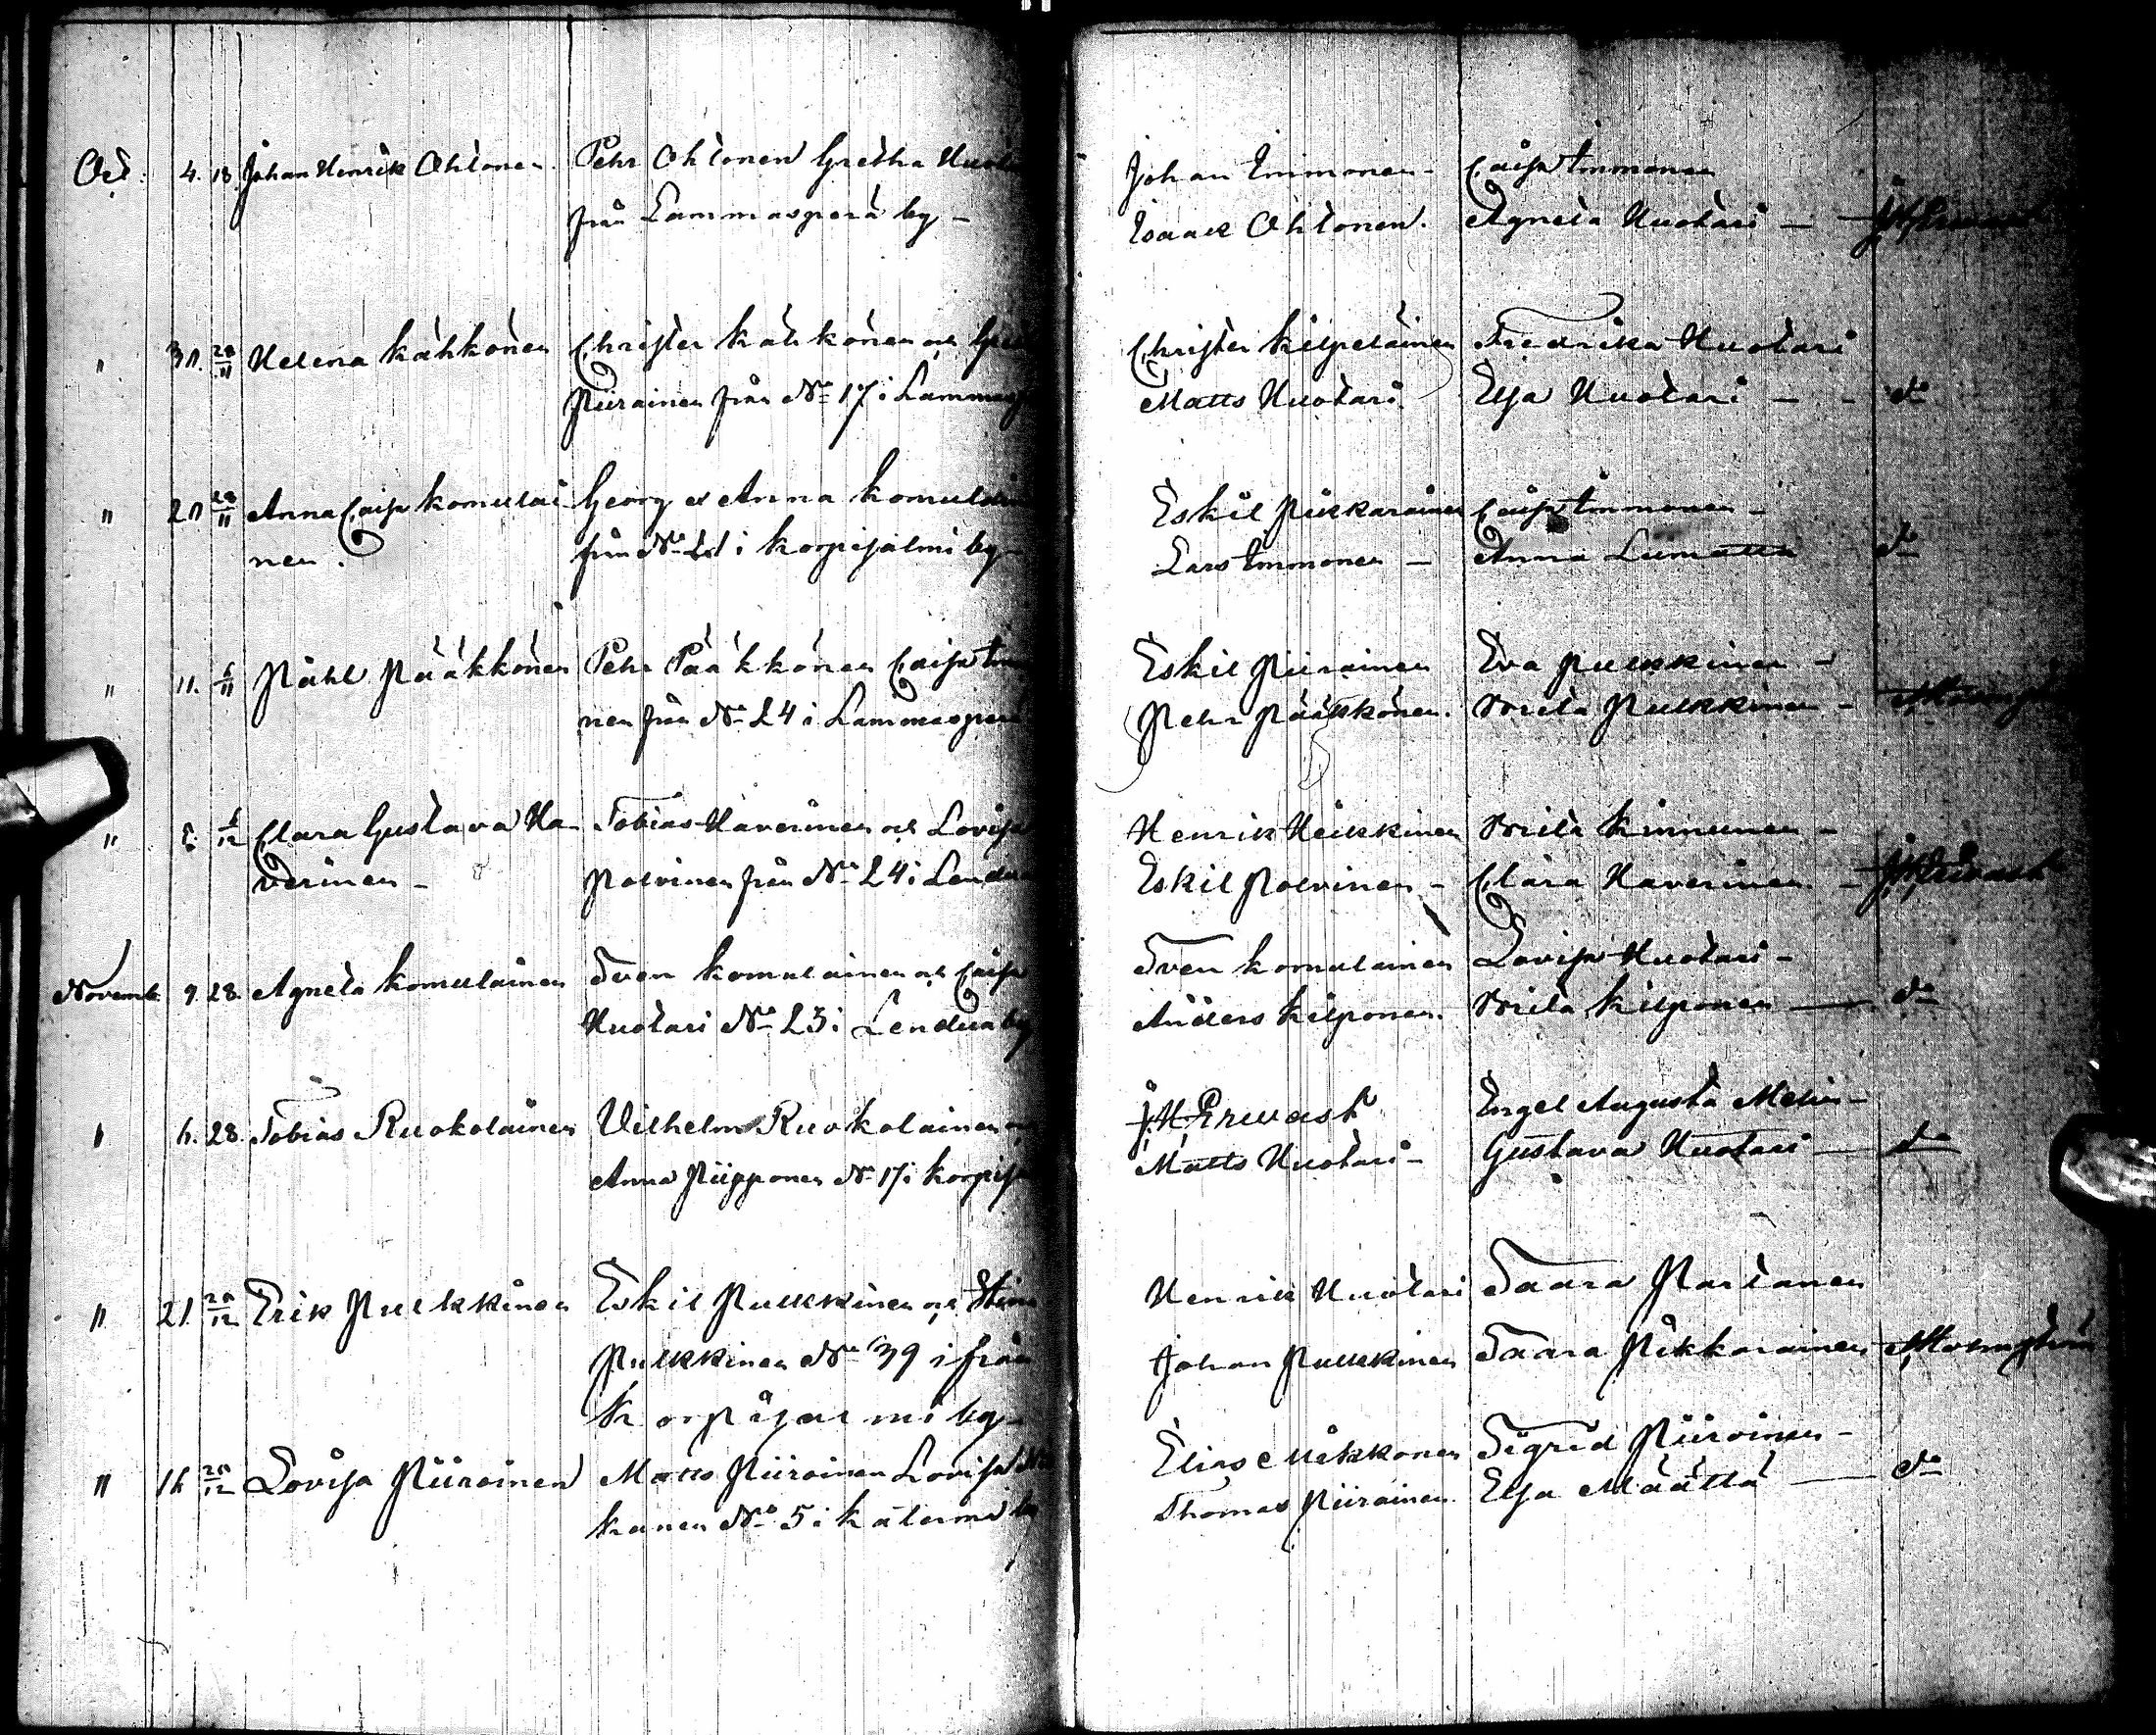 Oct. 4. 18. Johan Henrik Ohtonen. Pehr Ohtonen Gretha Huota
från Lammasperä by -
Johan Immonen - Caisa Immonen
Isaack Ohtonen. Agneta Huotari -
" 30. 20/11 Helena Kähkönen Christer Kähkönen och
Piirainen från No 17 i Lammasp
Christer Kilpeläinen Fredrika Huotari
Matts Huotari. Elsa Huotari - - do
" 20 20/11 Anna Caisa Komulai Georg o Anna Komulain
nen. från No 21 i Korpisalmi by
Eskil Pikkarainen Caisa Immonen -
Lars Immonen - Anna Lumatta do
" 11. 6/11 Påhl Pääkkönen Pehr Pääkkönen Caisa Imm
nen från No 24 i Lammasperä
Eskil Piirainen Eva Pulkkinen -
Pehr Pääkkönen. Brita Pulkkinen -
" Clara Gustava Ha- Tobias Haverinen och Lovisa
verinen - Polvinen från No 24 i Lendua
Henrik Heikkinen Brita Kinnunen -
Eskil Polvinen - Clara Haverinen -
Novemb. 9. 28. Agneta Komulainen Sven Komulainen och Caisa
Huotari No 23 i Lendua by
Sven Komulainen Lovisa Huotari -
Anders Kilponen. Brita Kilponen - do
" 6. 28. Tobias Ruokolainen Vilhelm Ruokolainen och
Anna Piipponen No 17 i Korpisa
J. H. Ervast Engel Augusta
Matts Huotari - Gustava Huotari - do
" 21 20/12 Erik Pulkkinen Eskil Pulkkinen och Stina
Pulkkinen No 39 ifrån
Korpisalmi by -
Henrik Huotari Saara Partanen
Johan Pulkkinen Saara Pikkarainen
" 16 20/12 Lovisa Piirainen Matts Piirainen Lovisa
kanen No 5 i Katerma by
Elias Mikkonen Sigrid Piirainen -
Thomas Piirainen. Elsa Määttä - do